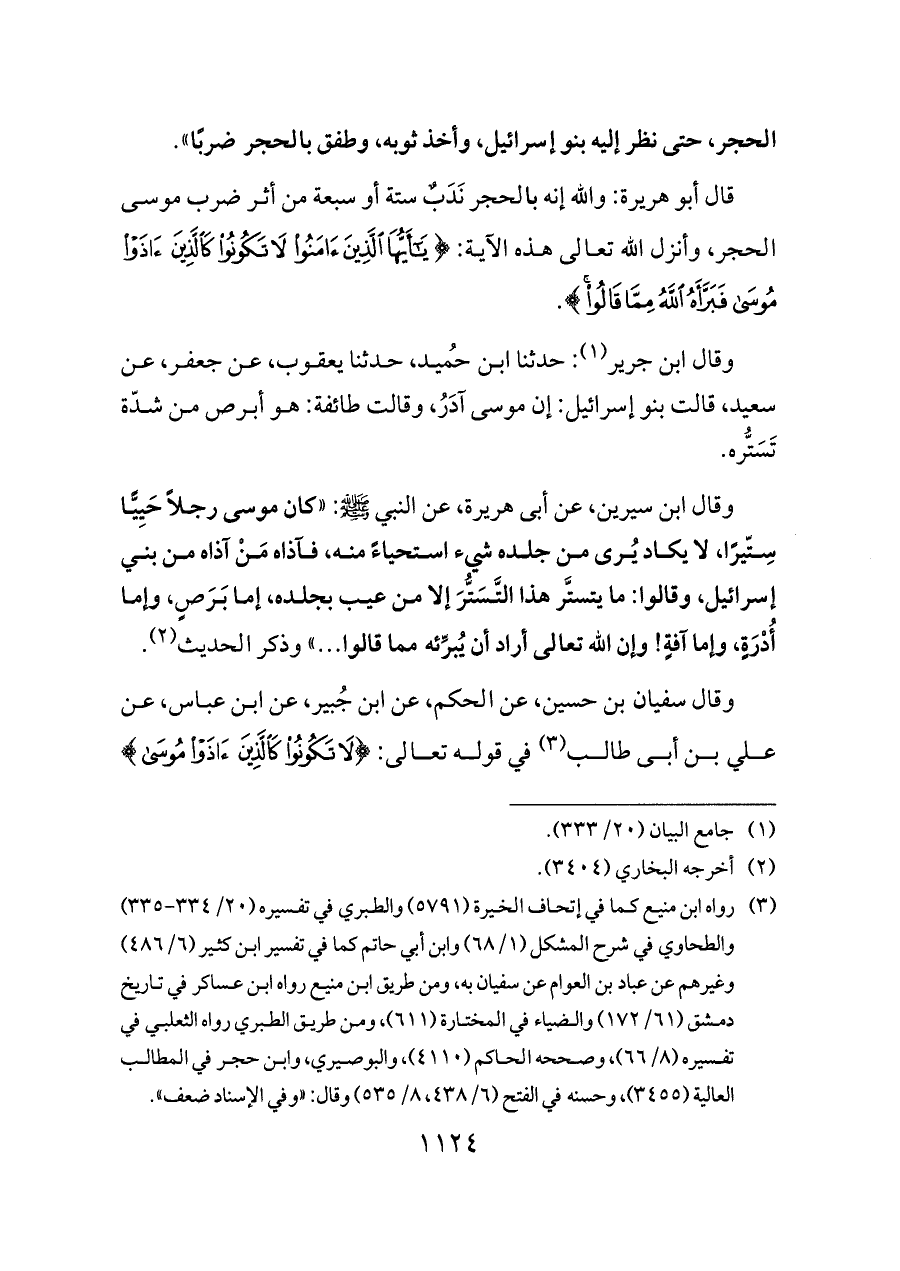 الحجر، حتى نظر إليه بنو إسرائيل، وأخذ ثوبه، وطفق بالحجر ضربًا».
قال أبو هريرة: والله إنه بالحجر نَدَبٌ ستة أو سبعة من أثر ضرب موسى
الحجر، وأنزل الله تعالى هذه الآية: ﴿يَٰٓأَيُّهَا ٱلَّذِينَ ءَامَنُوا۟ لَا تَكُونُوا۟ كَٱلَّذِينَ ءَاذَوْا۟
مُوسَىٰ فَبَرَّأَهُ ٱللَّهُ مِمَّا قَالُوا۟ۚ﴾.
وقال ابن جرير(١): حدثنا ابن حُميد، حدثنا يعقوب، عن جعفر، عن
سعيد، قالت بنو إسرائيل: إن موسى آدَرُ، وقالت طائفة: هو أبرص من شدّة
تَسَتُّره.
وقال ابن سيرين، عن أبى هريرة، عن النبي ﷺ: «كان موسى رجلاً حَيِيًّا
سِتّيرًا، لا يكاد يُرى من جلده شيء استحياءً منه، فآذاه مَنْ آذاه من بني
إسرائيل، وقالوا: ما يتستَّر هذا التَّسَتُّرَ إلا من عيب بجلده، إما بَرَصٍ، وإما
أُدْرَةٍ، وإما آفةٍ! وإن الله تعالى أراد أن يُبرِّئه مما قالوا...» وذكر الحديث(٢).
وقال سفيان بن حسين، عن الحكم، عن ابن جُبير، عن ابن عباس، عن
علي بن أبى طالب(٣) في قوله تعالى: ﴿لَا تَكُونُوا۟ كَٱلَّذِينَ ءَاذَوْا۟ مُوسَىٰ﴾
(١) جامع البيان (٢٠/ ٣٣٣).
(٢) أخرجه البخاري (٣٤٠٤).
(٣) رواه ابن منيع كما في إتحاف الخيرة (٥٧٩١) والطبري في تفسيره (٢٠/ ٣٣٤-٣٣٥)
والطحاوي في شرح المشكل (١/ ٦٨) وابن أبي حاتم كما في تفسير ابن كثير (٦/ ٤٨٦)
وغيرهم عن عباد بن العوام عن سفيان به، ومن طريق ابن منيع رواه ابن عساكر في تاريخ
دمشق (٦١/ ١٧٢) والضياء في المختارة (٦١١)، ومن طريق الطبري رواه الثعلبي في
تفسيره (٨/ ٦٦)، وصححه الحاكم (٤١١٠)، والبوصيري، وابن حجر في المطالب
العالية (٣٤٥٥)، وحسنه في الفتح (٦/ ٤٣٨، ٨/ ٥٣٥) وقال: «وفي الإسناد ضعف».
١١٢٤